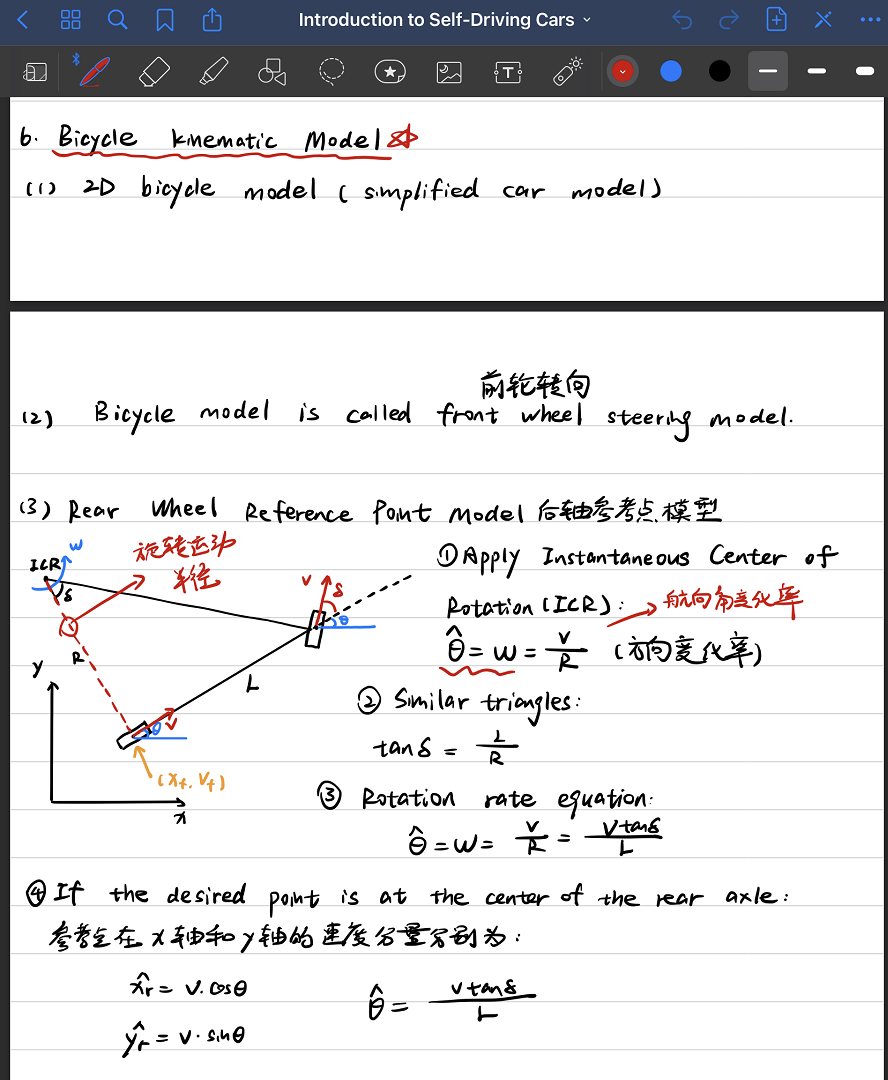 Introduction to Self-Driving Cars
6. Bicycle kinematic Model
(1) 2D bicycle model ( simplified car model)
前轮转向
(2) Bicycle model is called front wheel steering model.
(3) Rear Wheel Reference Point Model 后轴参考点模型
ICR
w
δ
旋转运动
半径
R
v
δ
θ
L
θ
v
(Xt, Vt)
y
x
① Apply Instantaneous Center of
Rotation (ICR):
航向角变化率
θ̂ = w = v/R (方向变化率)
② Similar triangles:
tanδ = L/R
③ Rotation rate equation:
θ̂ = w = v/R = vtanδ/L
④ If the desired point is at the center of the rear axle:
参考点在x轴和y轴的速度分量分别为:
x̂r = v.cosθ
θ̂ = vtanδ/L
ŷr = v·sinθ